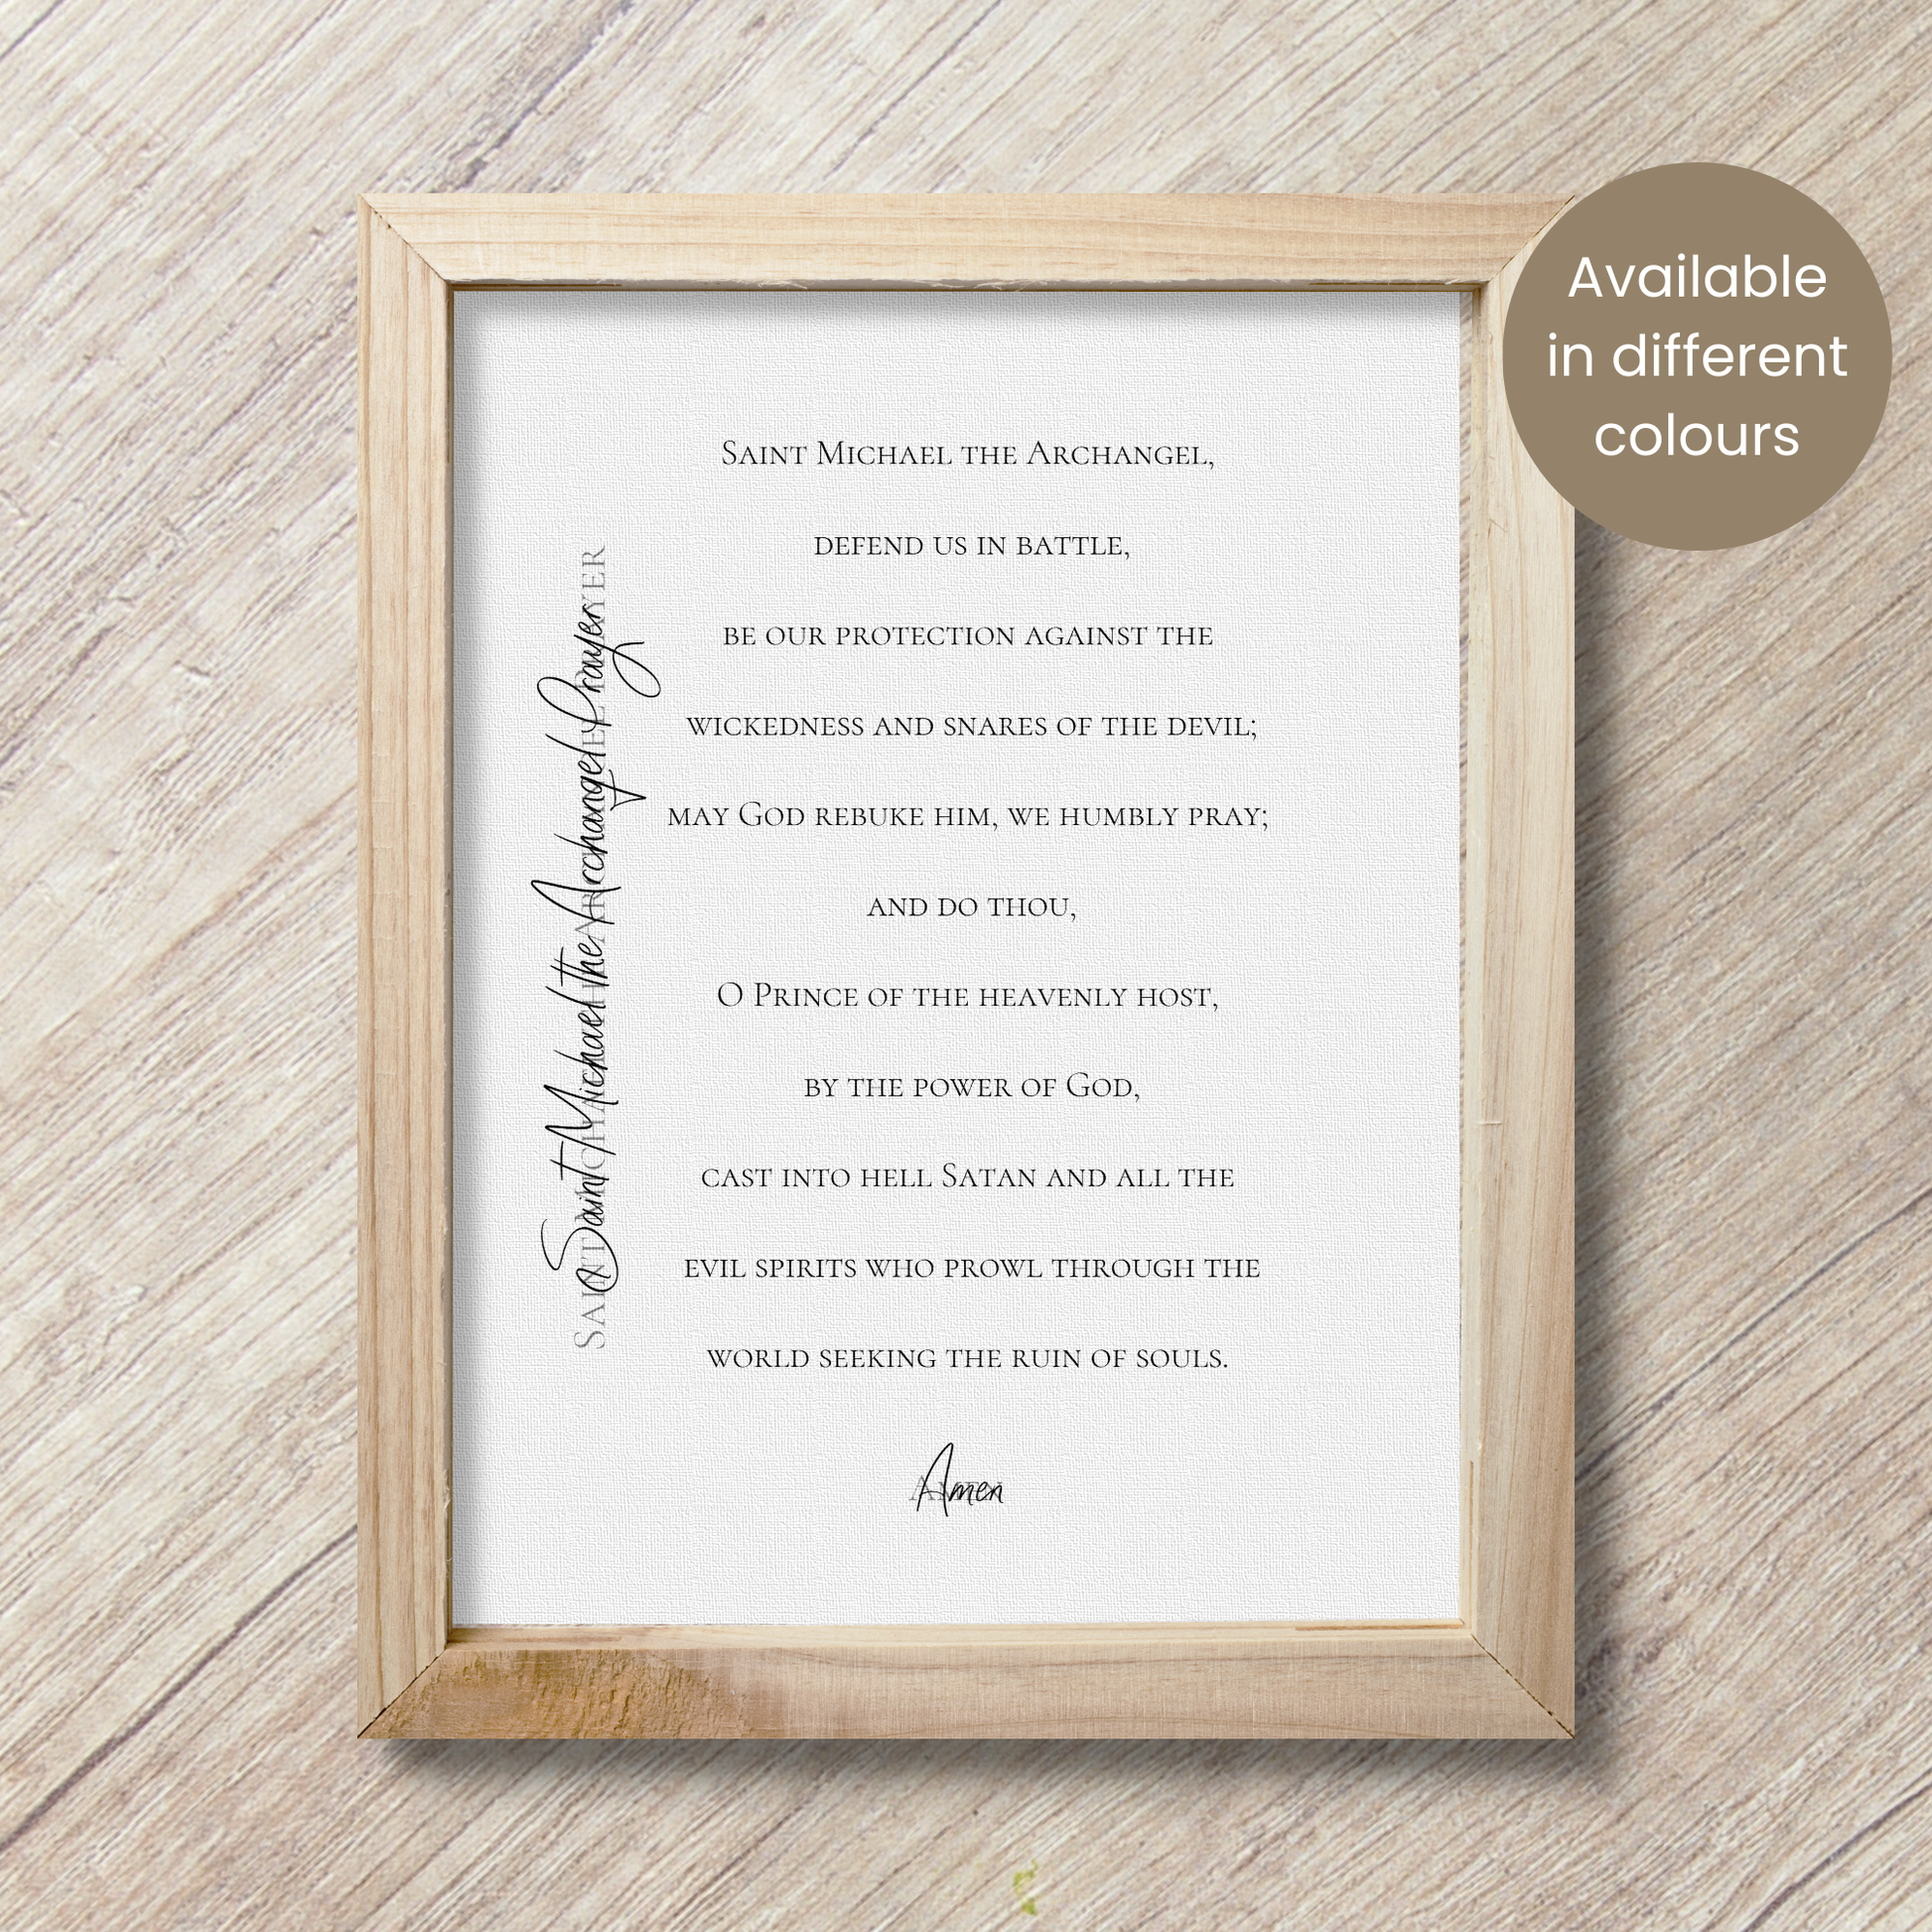 Saint Michael the Archangel,
defend us in battle,
be our protection against the
wickedness and snares of the devil;
may God rebuke him, we humbly pray;
and do thou,
O Prince of the heavenly host,
by the power of God,
cast into hell Satan and all the
evil spirits who prowl through the
world seeking the ruin of souls.
Amen
Amen
Saint Michael the Archangel Prayer
Saint Michael the Archangel Prayer
Available
in different
colours